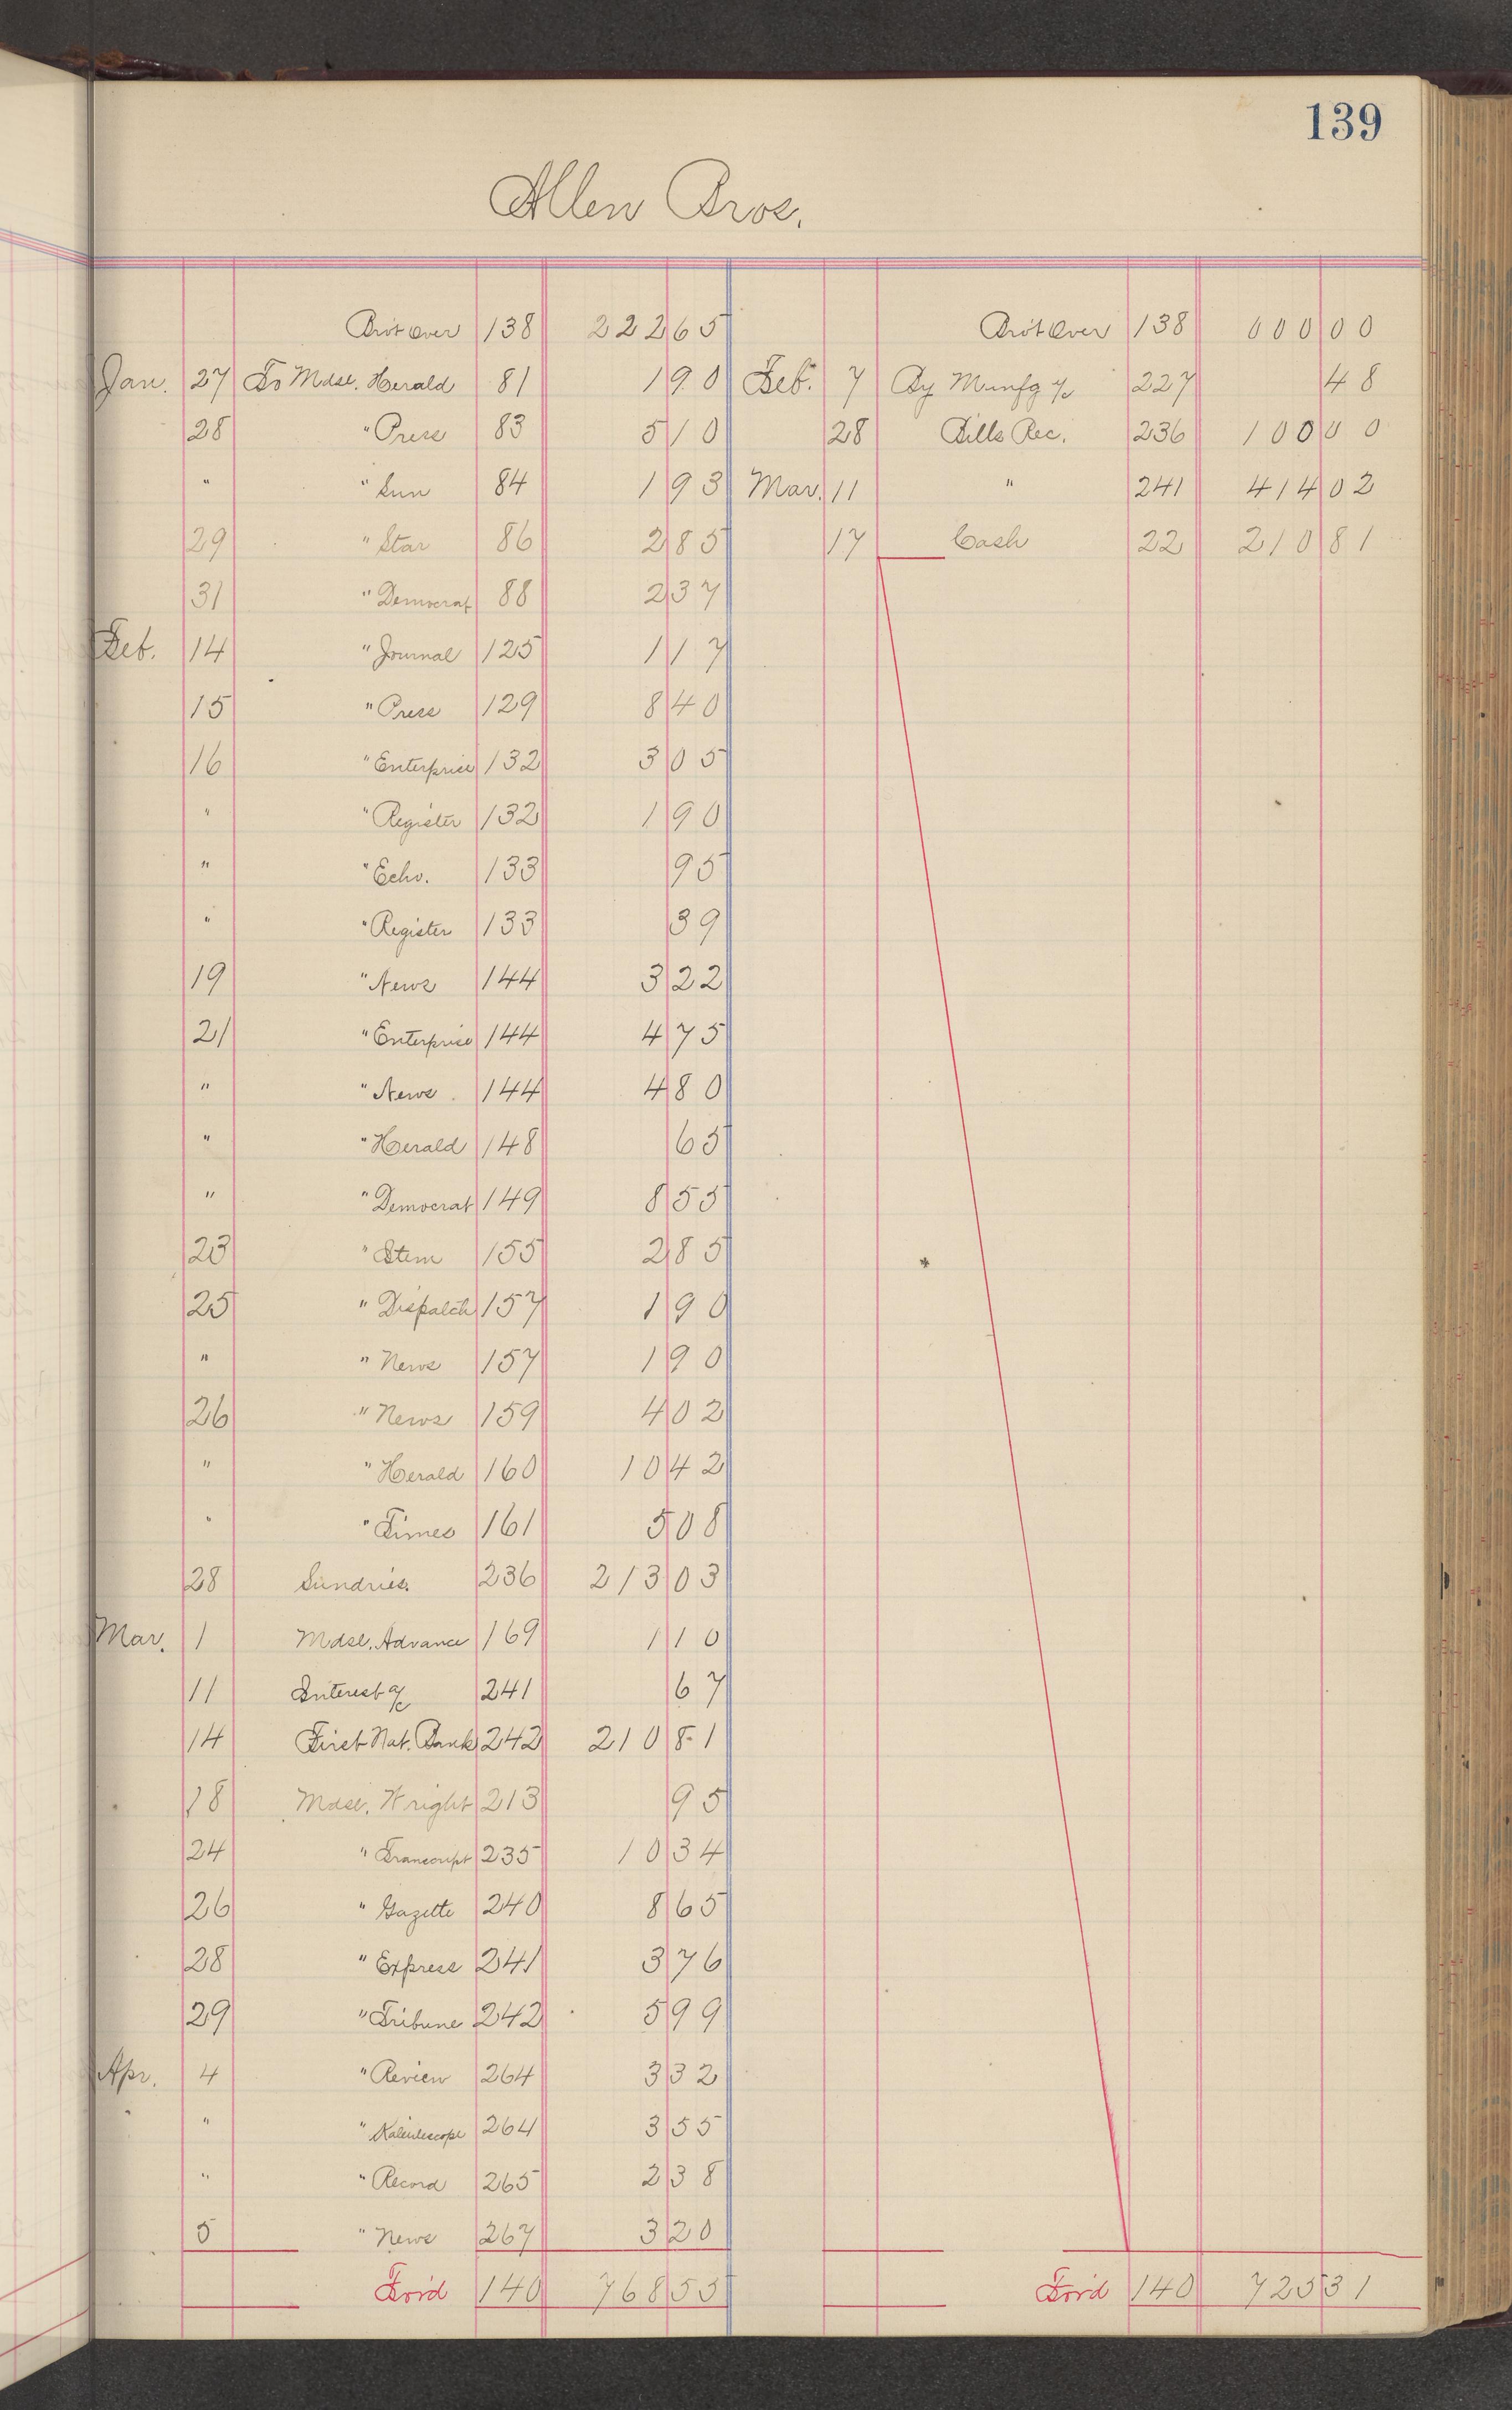 139
Allen Bros.
Bro't Over 138 222 65 Bro't Over 138 000 00
Jan. 27 To Mdse. Herald 81 1 90 Feb. 7 By Munfg a/c 227 48
28 " Press 83 5 10 28 Bills Rec. 236 100 00
" " Sun 84 1 93 Mar. 11 " 241 414 02
29 " Star 86 2 85 17 Cash 22 210 81
31 " Democrat 88 2 37
Feb. 14 " Journal 125 1 17
15 " Press 129 8 40
16 " Enterprise 132 3 05
" " Register 132 1 90
" " Echo. 133 95
" " Register 133 39
19 " News 144 3 22
21 " Enterprise 144 4 75
" " News 144 4 80
" " Herald 148 65
" " Democrat 149 8 55
23 " Item 155 2 85
25 " Dispatch 157 1 90
" " News 157 1 90
26 " News 159 4 02
" " Herald 160 10 42
" " Times 161 5 08
28 Sundries. 236 213 03
Mar. 1 Mdse. Advance 169 1 10
11 Interest a/c 241 67
14 First Nat. Bank 242 210 81
18 Mdse. Wright 213 95
24 " Transcript 235 10 34
26 " Gazette 240 8 65
28 " Express 241 3 76
29 " Tribune 242 5 99
Apr. 4 " Review 264 3 32
" " Kaleidescope 264 3 55
" " Record 265 2 38
5 " News 267 3 20
For'd 140 768 55 For'd 140 725 31